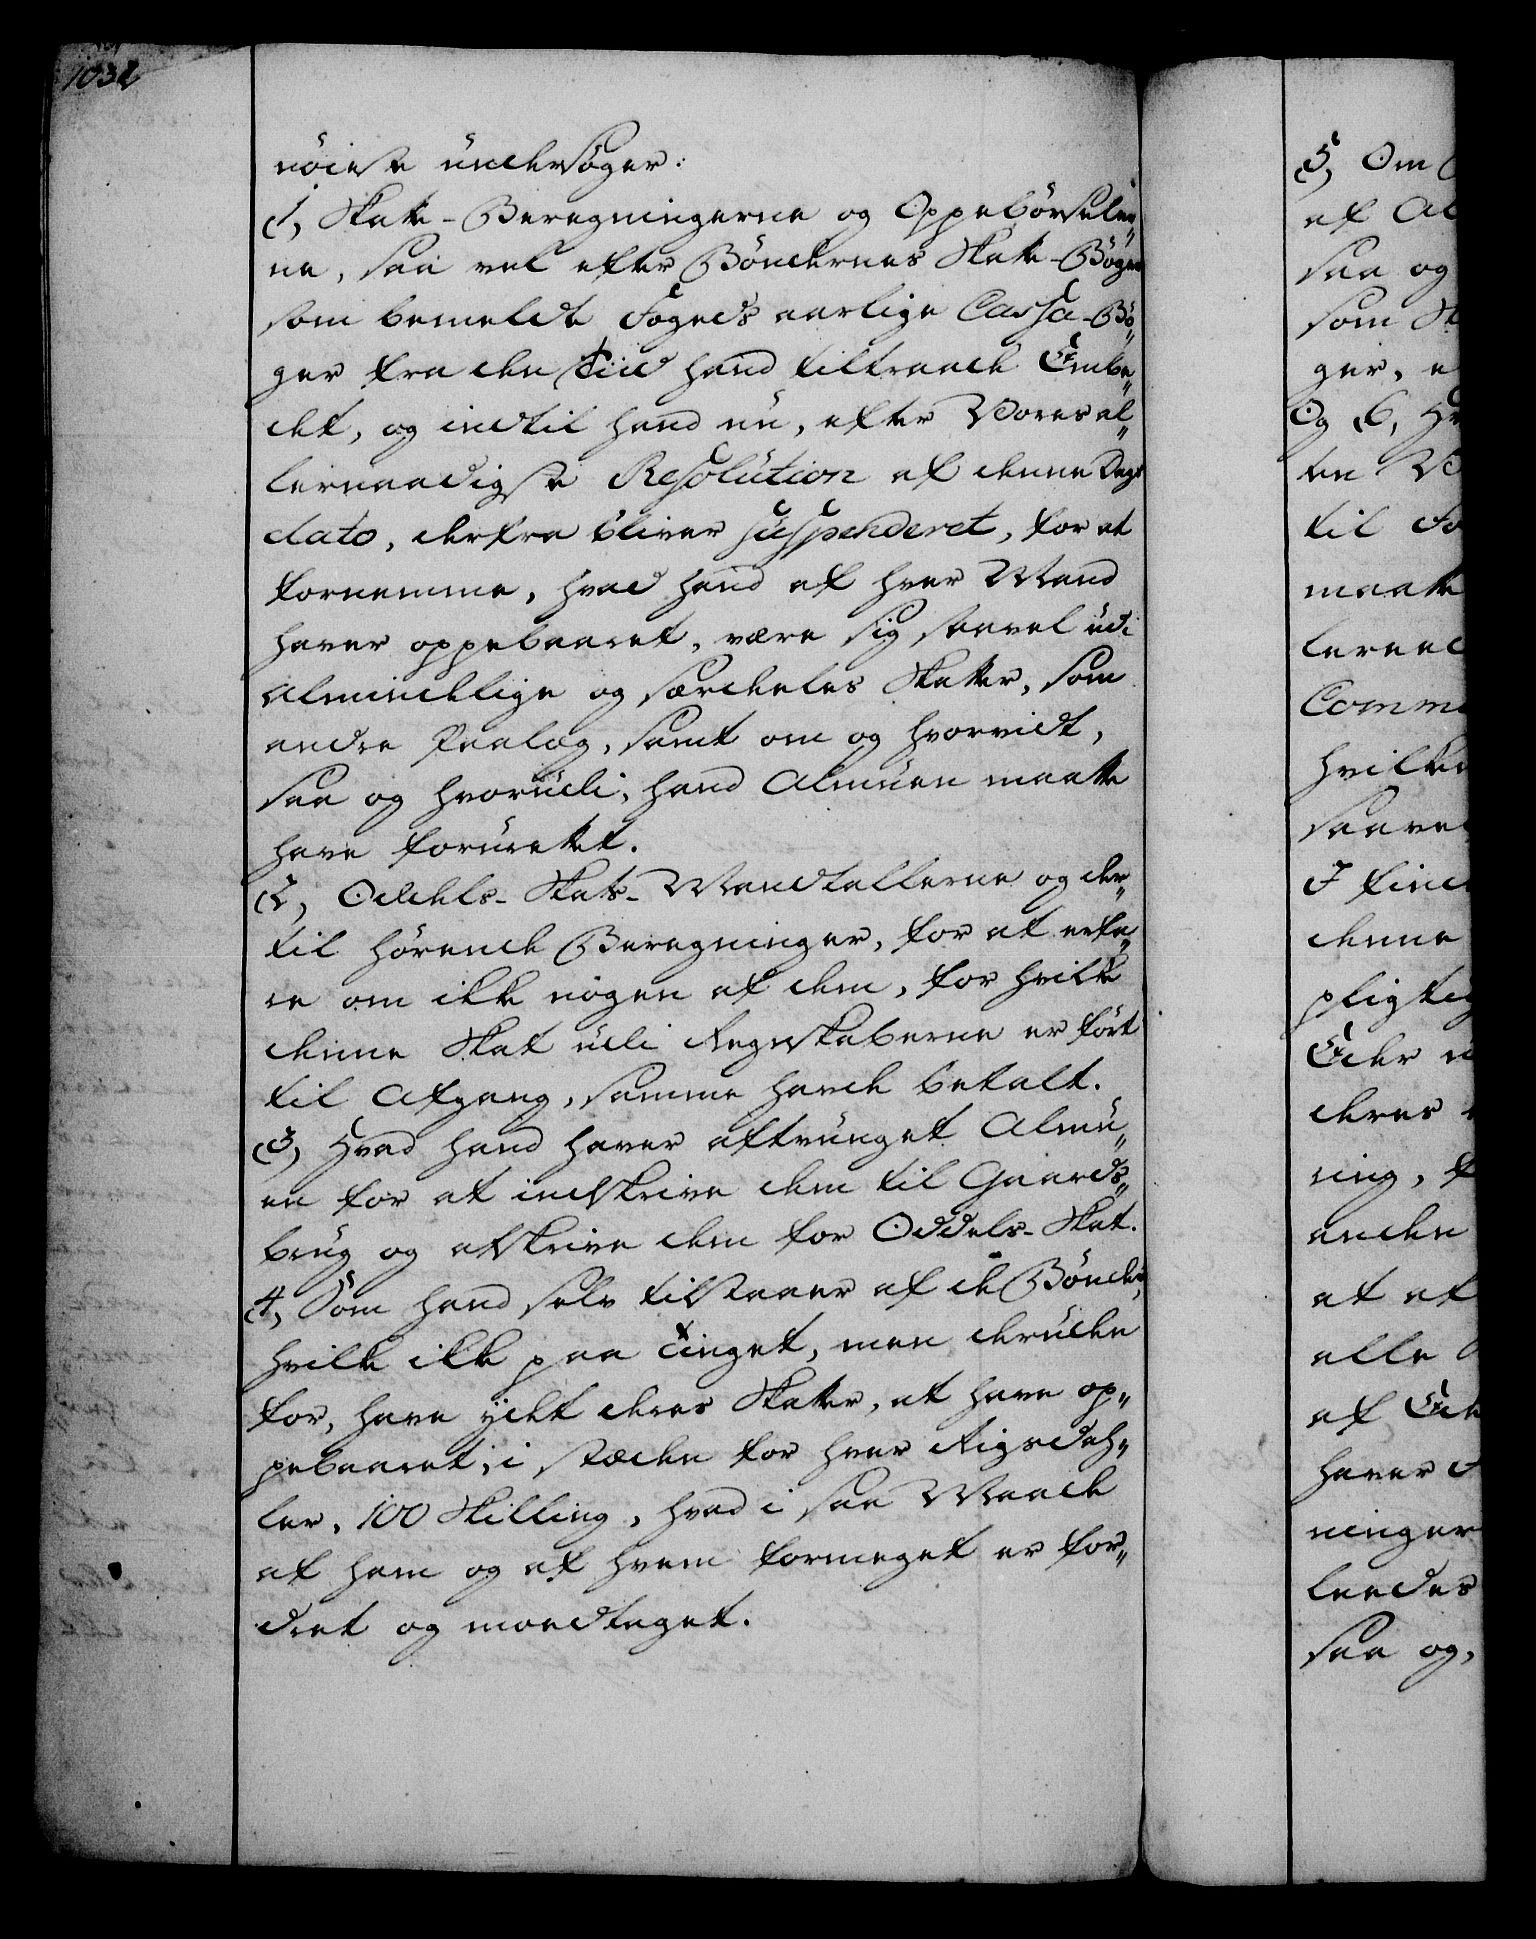 1032
nöieste undersöger:
1, Skatte-Beregningerne og Oppebörseler„
ne, saa vel efter Böndernes Skatte-Böger
som bemeldte Fogeds aarlige Cassa-Bö„
ger fra den Tiid hand tiltraade Embe„
det, og indtil hand nu, efter Vores al„
lernaadigste Resolution af denne Dags
dato, derfra bliver suspenderet, for at
fornemme, hvad hand af hver Mand
haver oppebaaret, være sig saavel udi
Almindelige og særdeles Skatter, som
andre Paalæg, samt om og hvorvidt,
saa og hvorudi, hand Almuen maatte
have forurettet.
2, Oddels-Skats-Mandtallerne og der„
til hörende Beregninger, for at erfa„
re om ikke nogen af dem, for hvilke
denne Skat udi Regnskaberne er fört
til Afgang, samme havde betalt.
3, Hvad hand haver aftvunget Almu„
en for at indskrive dem til Gaards„
brug og afskrive dem for Oddels-Skat.
4, Som hand selv tilstaaer af de Bönder,
hvilke ikke paa Tinget, men deruden
for, have ydet deres Skatter, at have op„
pebaaret, i stæden for hver Rigsdah„
ler, 100 Skilling, hvad i saa Maade
af ham og af hvem formeget er for„
dret og modtaget.
5, Om
af Al
saa og
som
ger,
Og 6,
ten
til
maatte
lernaad
Comm
hvilke
saavel
I find
denne
pligtig
Eder
deres
ring,
anden
at af
alle
af Ede
haver
ninger
leedes
saa og,